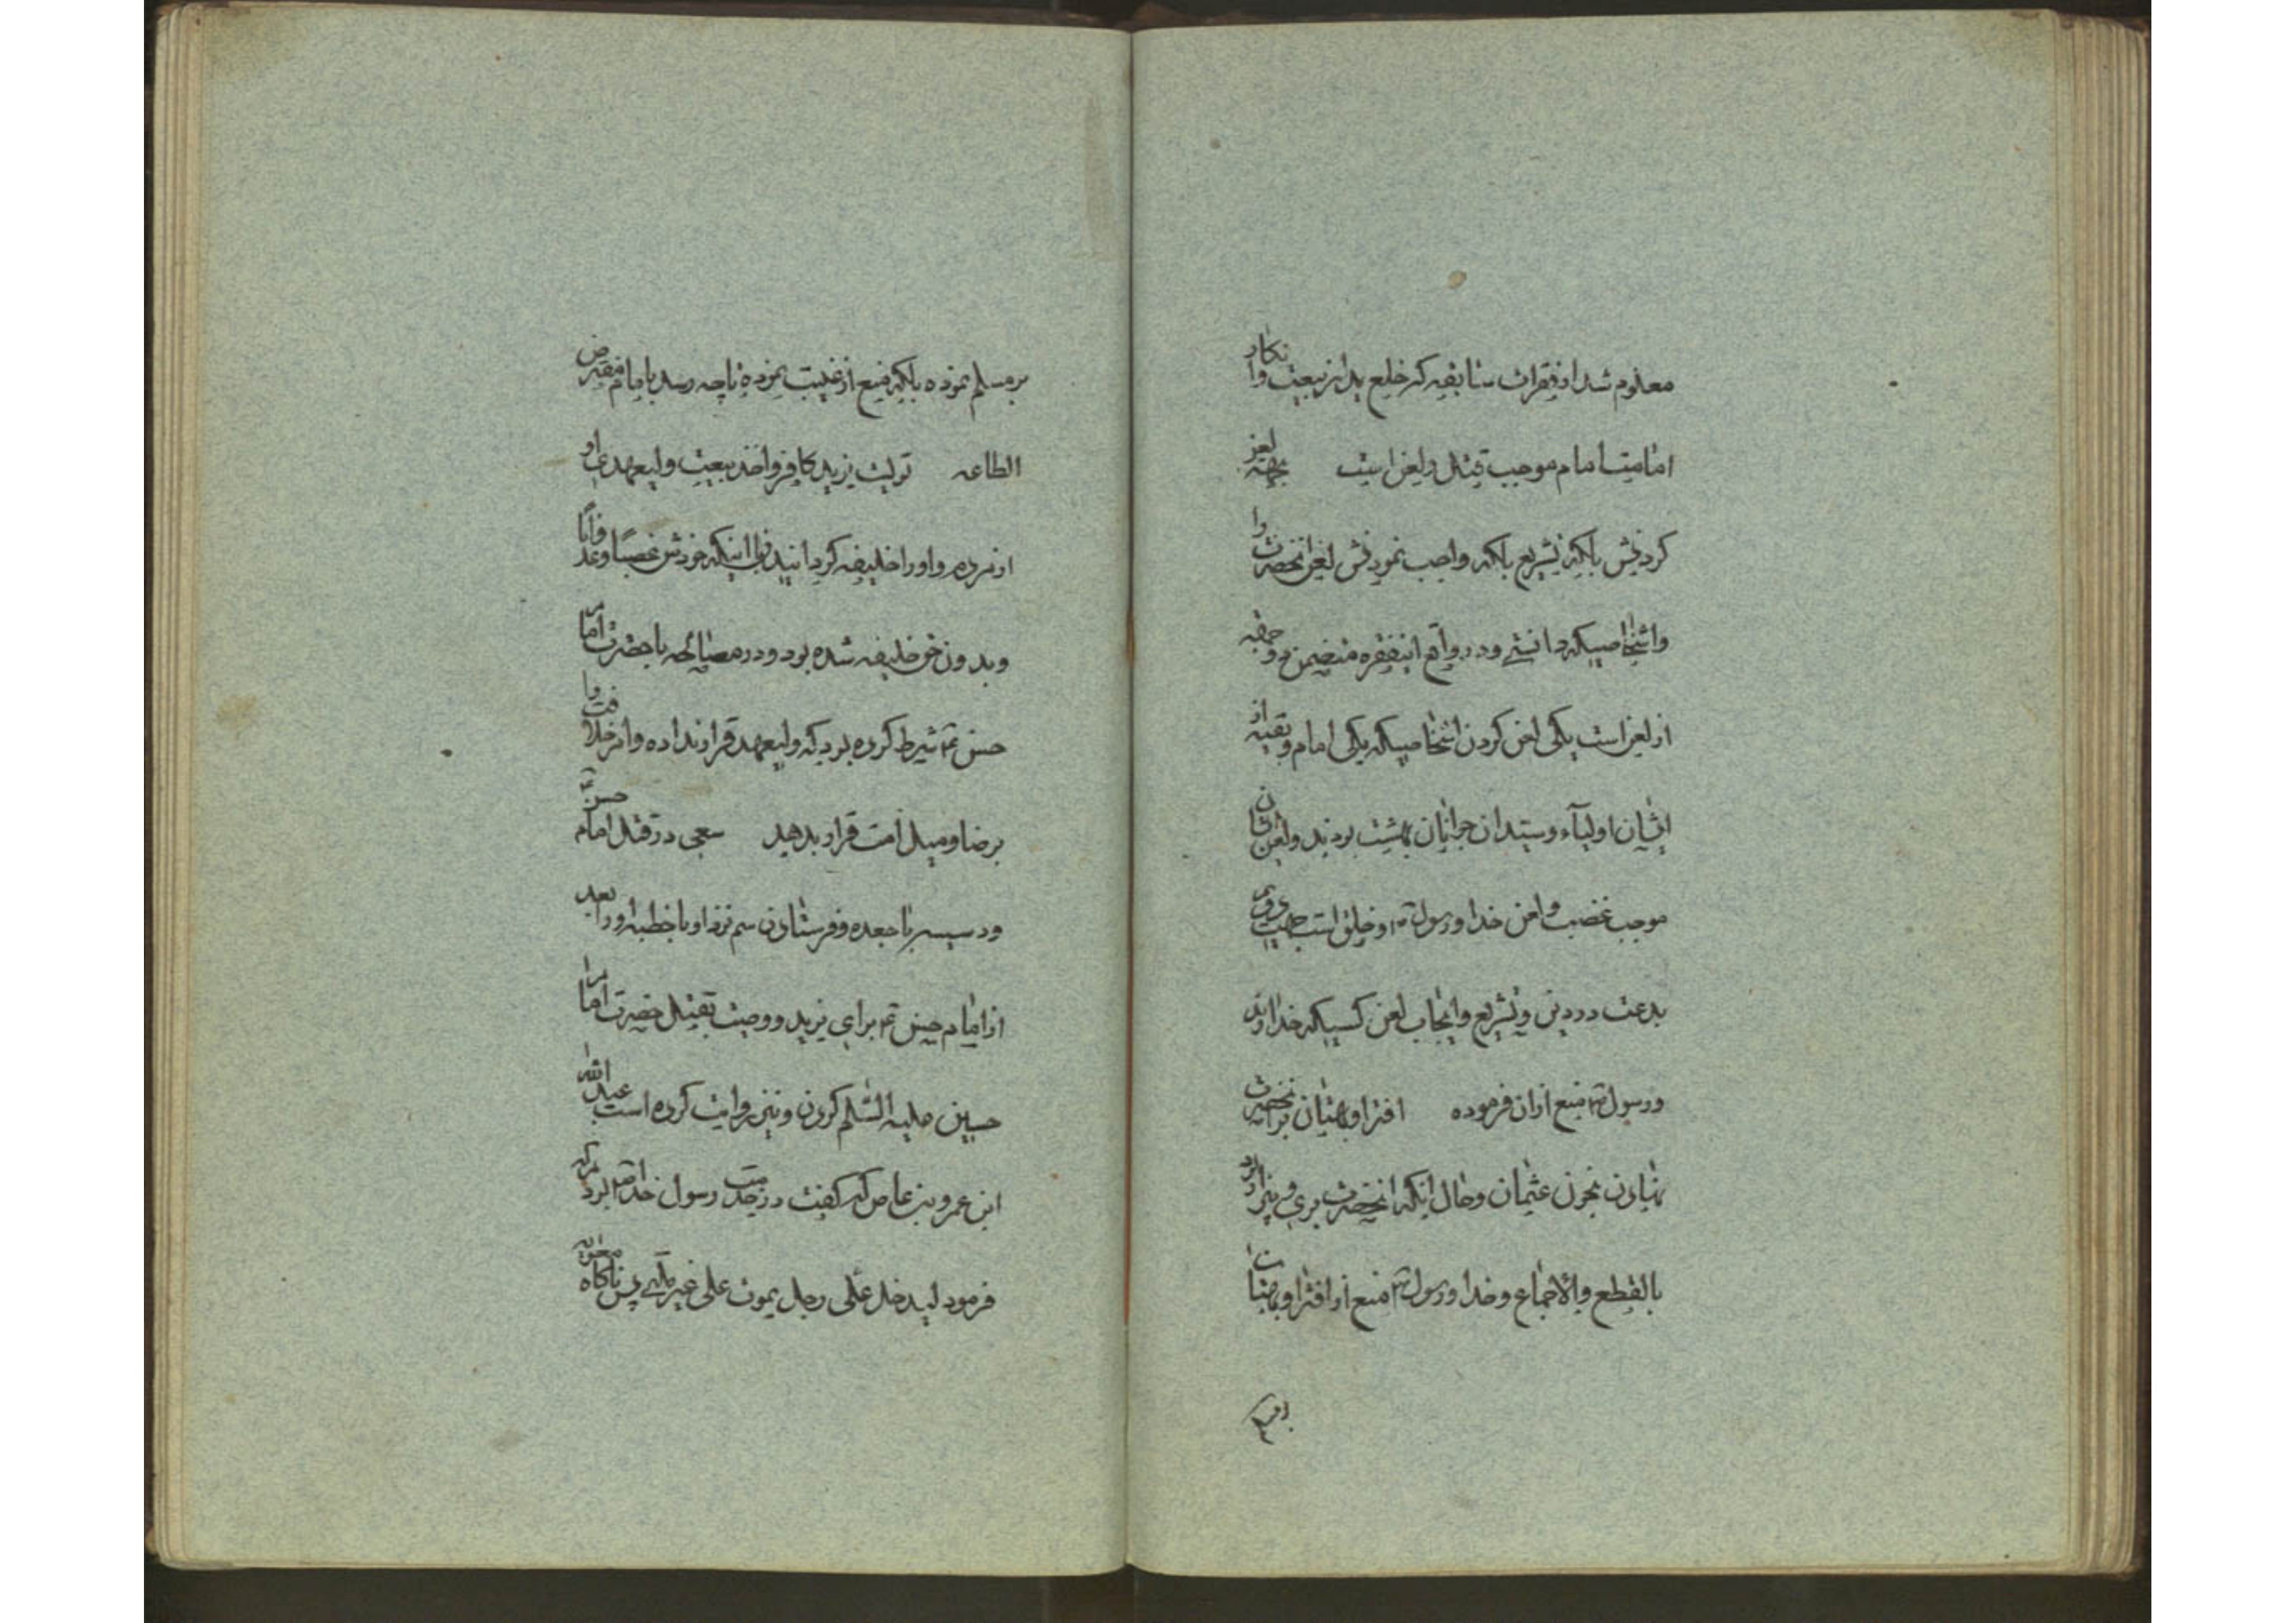 معلوم شد از فقرات سابقه که خلع ید از بیعت و انکار
امامت امام موجب قتل و لعن است بجهة لعن
کردنش بلکه تشریع بلکه واجب نمودنش لعن آنحضرت را
و اشخاصیکه دانستی و در واقع اینفقره متضمن دو جهة
از لعن است یکی لعن کردن اشخاصیکه یکی امام و بقیه از
ایشان اولیآء و سیدان جوانان بهشت بودند و لعن ایشان
موجب غضب و لعن خدا و رسول ص و خلق است جهت دوی
بدعت در دین و تشریع و ایجاب لعن کسیکه خداوند
و رسول ص منع از ان فرموده افترا و بهتان بر آنحضرت
نهادن بخون عثمان و حال اینکه آنحضرت بری و نیز
بالقطع والاجماع و خدا و رسول ص منع از افترا و بهتان
بر مسلم نموده بلکه منع از غیبت نموده تا چه رسد بامام مفترض
الطاعه تولیت یزید کافر و اخذ بیعت ولیعهدی او
از مردم و او را خلیفه گردانید با اینکه خودش غصبًا وعدوانًا
و بدون حق خلیفه شده بود و در مصالحه با حضرت امام
حسن ع شرط کرده بود که ولیعهد قرار نداده و امر خلافت را
برضا و میل امت قرار بدهید سعی در قتل امام حسن ع
و دسیسه با جعده و فرستادن سم نزد او با خطبه او را بعد
از امام حسن ع برای یزید و وصیت بقتل حضرت امام
حسین علیه السّلم کردن و نیز روایت کرده است عبد الله
ابن عمرو بن عاص که گفت در خدمت رسول خدا ص بودم که
فرمود لیدخل علی رجل یموت علی غیر ملتی پس ناگاه معویة